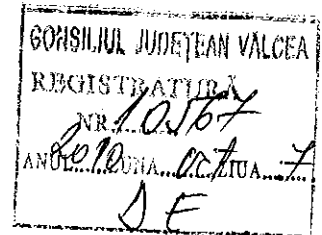 CONSILIUL JUDEŢEAN VÂLCEA
REGISTRATURĂ
NR. 10567
ANUL 2010 LUNA Oct ZIUA 7
DE